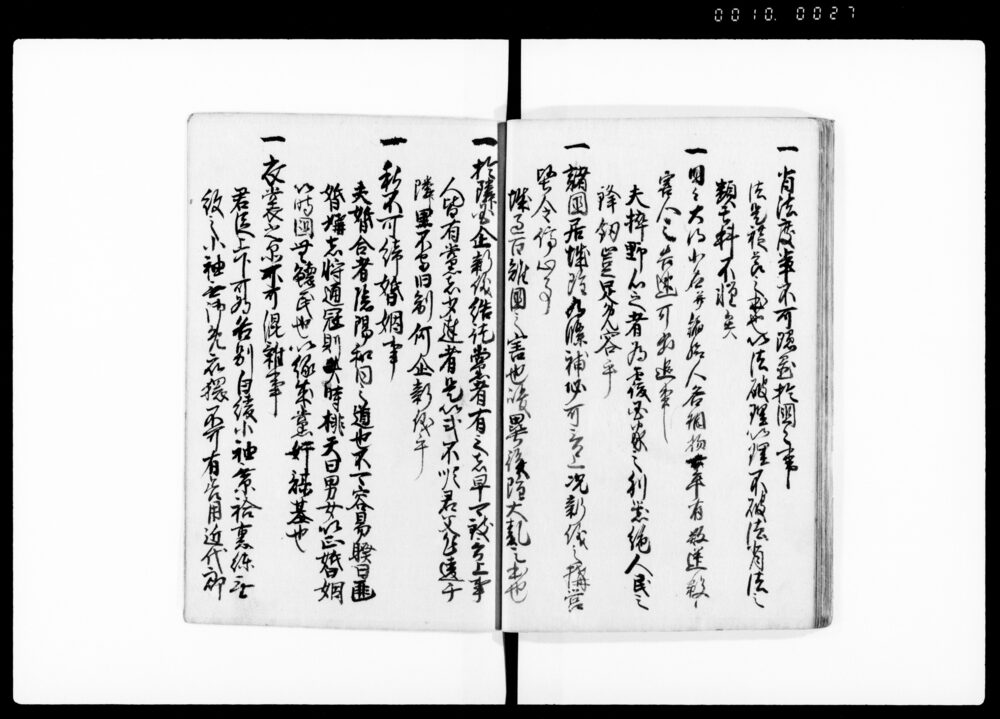 0010. 0027
一 背法度輩不可隠置於国々事
法是禮節之本也以法破理以理不破法背法之
類其科不軽矣
一 国々大名小名并諸給人各相抱士卒有叛逆殺
害人之告速可追出事
夫挟野心之者為覆国家之利器絶人民之
鋒釼豈足允容乎
一 諸国居城雖為修補必可言上況新儀之構営
堅令停止事
城過百雉国之害也峻塁浚隍大乱之本也
一 於隣国企新儀結徒党者有之者早可致言上事
人皆有党亦少達者是以或不順君父乍違于
隣里不守旧制何企新儀乎
一 私不可結婚姻事
夫婚合者陰陽和同之道也不可容易睽曰匪
婚媾志将通寇則失時桃夭曰男女以正婚姻
以時国無鰥民也以縁成党奸謀基也
一 衣裳之品不可混雑事
君臣上下可為各別白綾小袖紫袷裏練無
紋之小袖無御免衣猥不可有着用近代郎